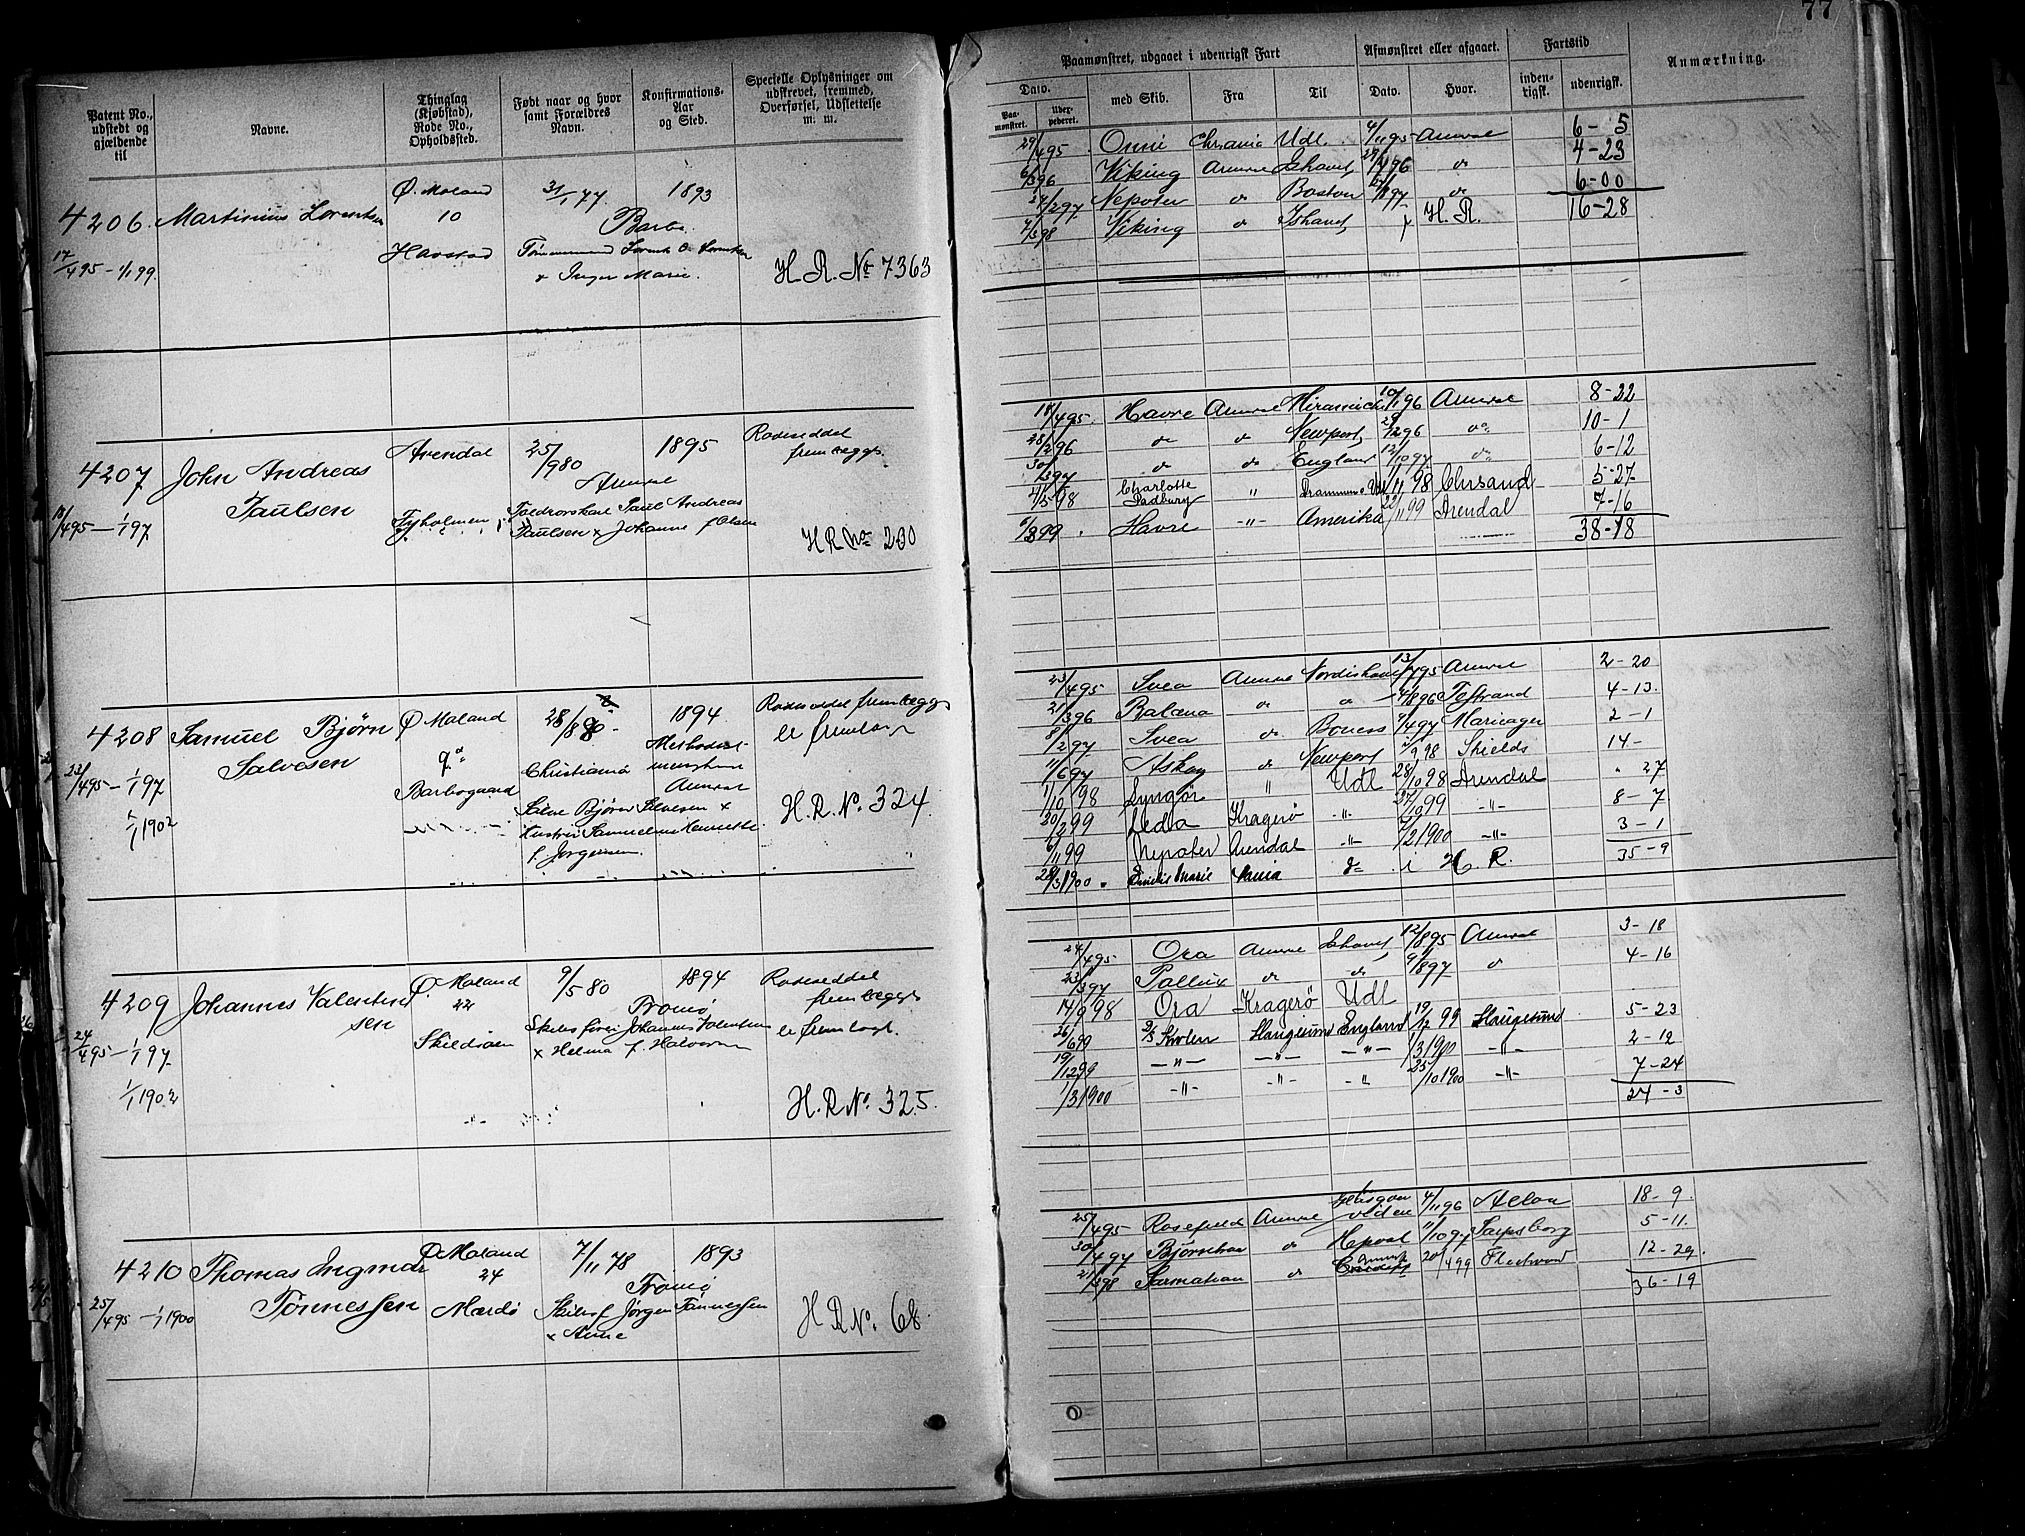 77
Patent No., udstedt og gjældende til
Navne.
Thinglag (Kjøbstad), Rode No., Opholdssted.
Født naar og hvor samt Forældres Navn.
Konfirmations-Aar og Sted.
Specielle Oplysninger om udskrevet, fremmed, Overførsel, Udslettelse m. m.
Paamønstret, udgaaet i udenrigsk Fart
Afmønstret eller afgaaet.
Fartstid
Anmærkning.
Dato.
med Skib.
Fra
Til
Dato.
Hvor.
inden-rigsk.
udenrigsk.
Paa-mønstret.
4206. Martinius Lorentsen
Ø. Moland
10
Havstad
31/1 77
1893
Barbo
17/4 95 - 1/1 99.
& Inger Marie.
H. R. No 7363
29/4 95 Onni Chrania Udl. 4/11 95 Arendal 6 - 5
6/3 96 Viking Arendal Ishavet do 4-23
2/2 97 Nepoter do Boston do 6-00
7/3 98 Viking do Ishavet H. R. 16-28
4207 John Andreas
Paulsen
Arendal
Tyholmen
25/9 80
1895
Arendal
Rodeseddel
fremlægges
18/4 95 - 1/1 97
Paul Andreas
Paulsen & Johanne f Olsen
H R No 200
18/4 95. Havre Arendal Miramichi 96 Arendal 8-22
28/2 96 do do Newport 96 do 10-1
30/3 97 do do England 12/10 97 do 6-12
98 Charlotte Padbury " Drammen Udl 11/11 98 Chrsand 5-27
6/3 99 Havre -"- Amerika 22/11 99 Arendal 7-16
38-18
4208 Samuel Bjørn
Salvesen
Ø Moland
9
Barbogaard
28/8 80
1894
Christiansø
Rodeseddel fremlægges
er fremlagt
23/4 95 - 1/1 97
1/1 1902
Salve Bjørn Salvesen &
Hustru Samueline Henriette
f. Jørgensen.
H. R. No. 324.
23/4 95 Svea Arendal Nordishavet 13/7 95 Arendal 2-20
2/3 96 Balæna do do 8 96 Tofstrand 4-13.
8/2 97 Svea do Boness 4 97 Mariager 2-1
11/6 97 Askøy do Newport 9 98 Shields 14-
1/10 98 Lyngør " Udl 28/10 98 Arendal 27
30/2 99 Leda Kragerø -"- 27/10 99 -"- 8-7
6/11 99 Nepoter Arendal -"- 2 1900 -"- 3-1
28/3 1900 Emilie Marie do i H. R. 35-9
4209 Johannes Valentin
sen
Ø. Moland
22
Skilsøen
9/5 80
1894
Tromø
Rodeseddel
fremlægges
er fremlagt.
24/4 95 - 1/1 97.
1/1 1902
Skibsfører Johannes Valentinsen
& Helma f. Halvorsen
H. R No. 325.
24/4 95 Ora Arendal Ishavet 12/8 95 Arendal 3-18
23/3 97 Pollux do do 9/8 97 do 4-16
14/9 98 Ora Kragerø Udl
26/6 99 D/S Skolen Haugesund England 19/12 99 Haugesund 5-23
19/12 99 -"- -"- -"- 1/3 1900 -"- 2-12
1/3 1900 -"- -"- -"- 25/10 1900 -"- 7-24
24-3
4210 Thomas Ingmar
Tønnessen
Ø. Moland
24
Mærdø
7/11 78
1893
Tromø
25/4 95 - 1/1 1900
Skibsf Jørgen Tønnessen
& Anne
H R No. 68.
25/4 95 Rosefield Arendal 4/11 96 Alloa 18-9.
30/4 97 Bjørnhaa do Hpool 11/10 97 Sarpsborg 5-11.
21/3 98 Sarmatian do 20/4 99 Fleetwood 12-29.
36-19